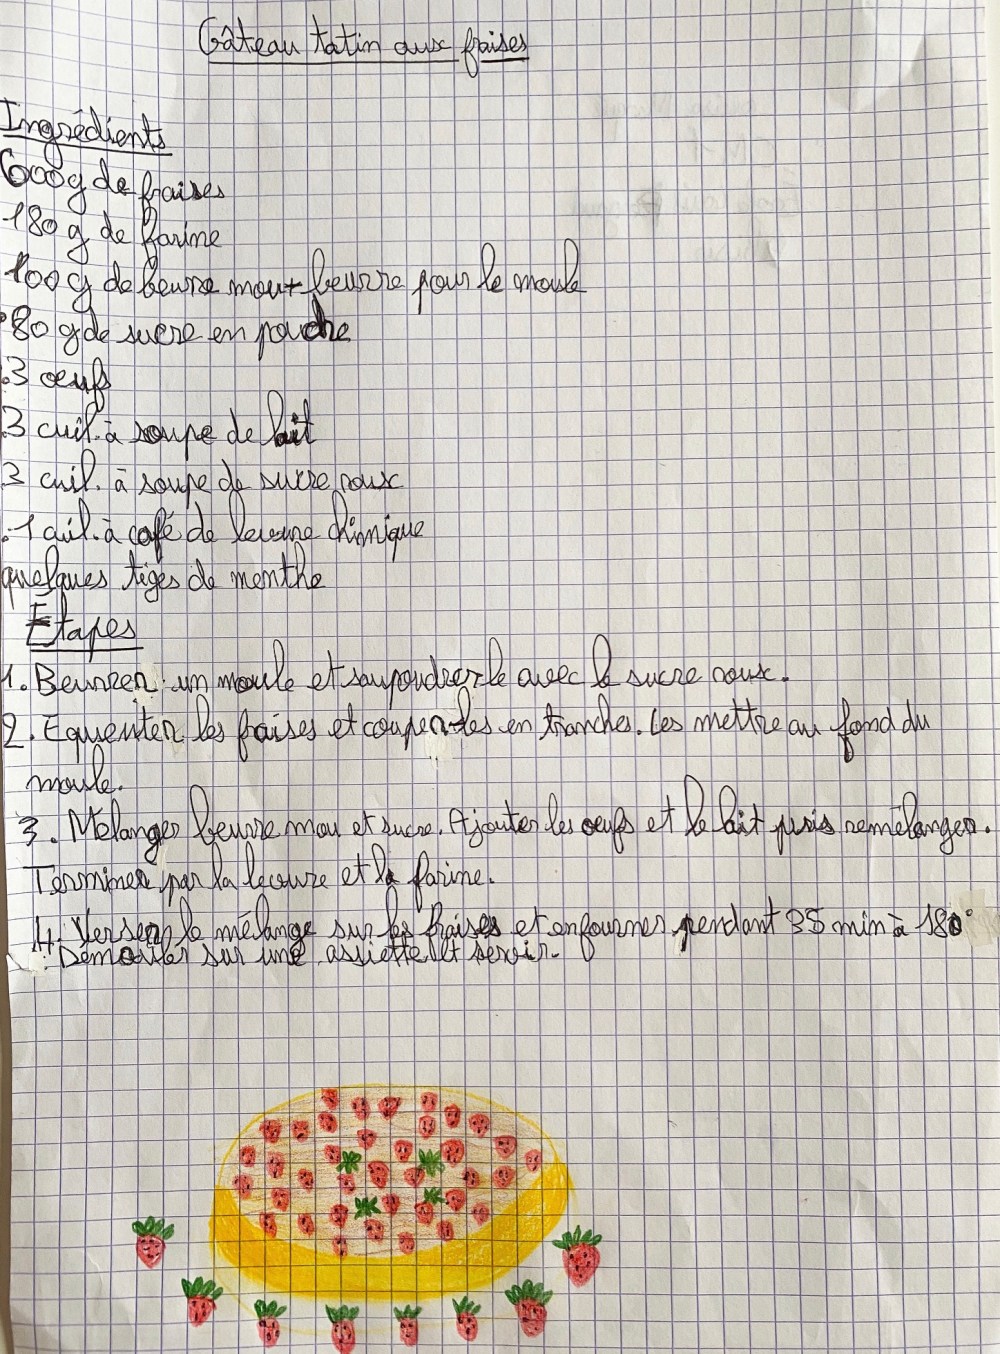 Gâteau tatin aux fraises
Ingrédients
600g de fraises
180 g de farine
100g de beurre mou + beurre pour le moule
80 g de sucre en poudre
3 oeufs
3 cuil. à soupe de lait
3 cuil. à soupe de sucre roux
1 cuil. à café de levure chimique
quelques tiges de menthe
Étapes
1. Beurrer un moule et saupoudrer-le avec le sucre roux.
2. Equeuter les fraises et couper-les en tranches. Les mettre au fond du
moule.
3. Mélanger beurre mou et sucre. Ajouter les oeufs et le lait puis remélanger.
Terminer par la levure et la farine.
4. Verser le mélange sur les fraises et enfourner pendant 35 min à 180°
Démouler sur une assiette et servir.